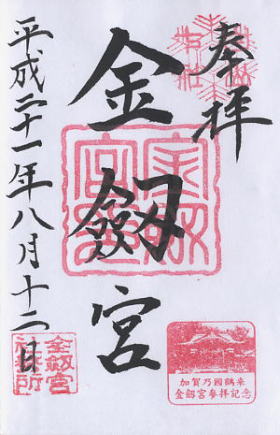 奉拝
金劔宮
平成二十一年八月十二日
金劔宮
加賀乃國鶴来
金劔宮参拝記念
金劔宮
社務所